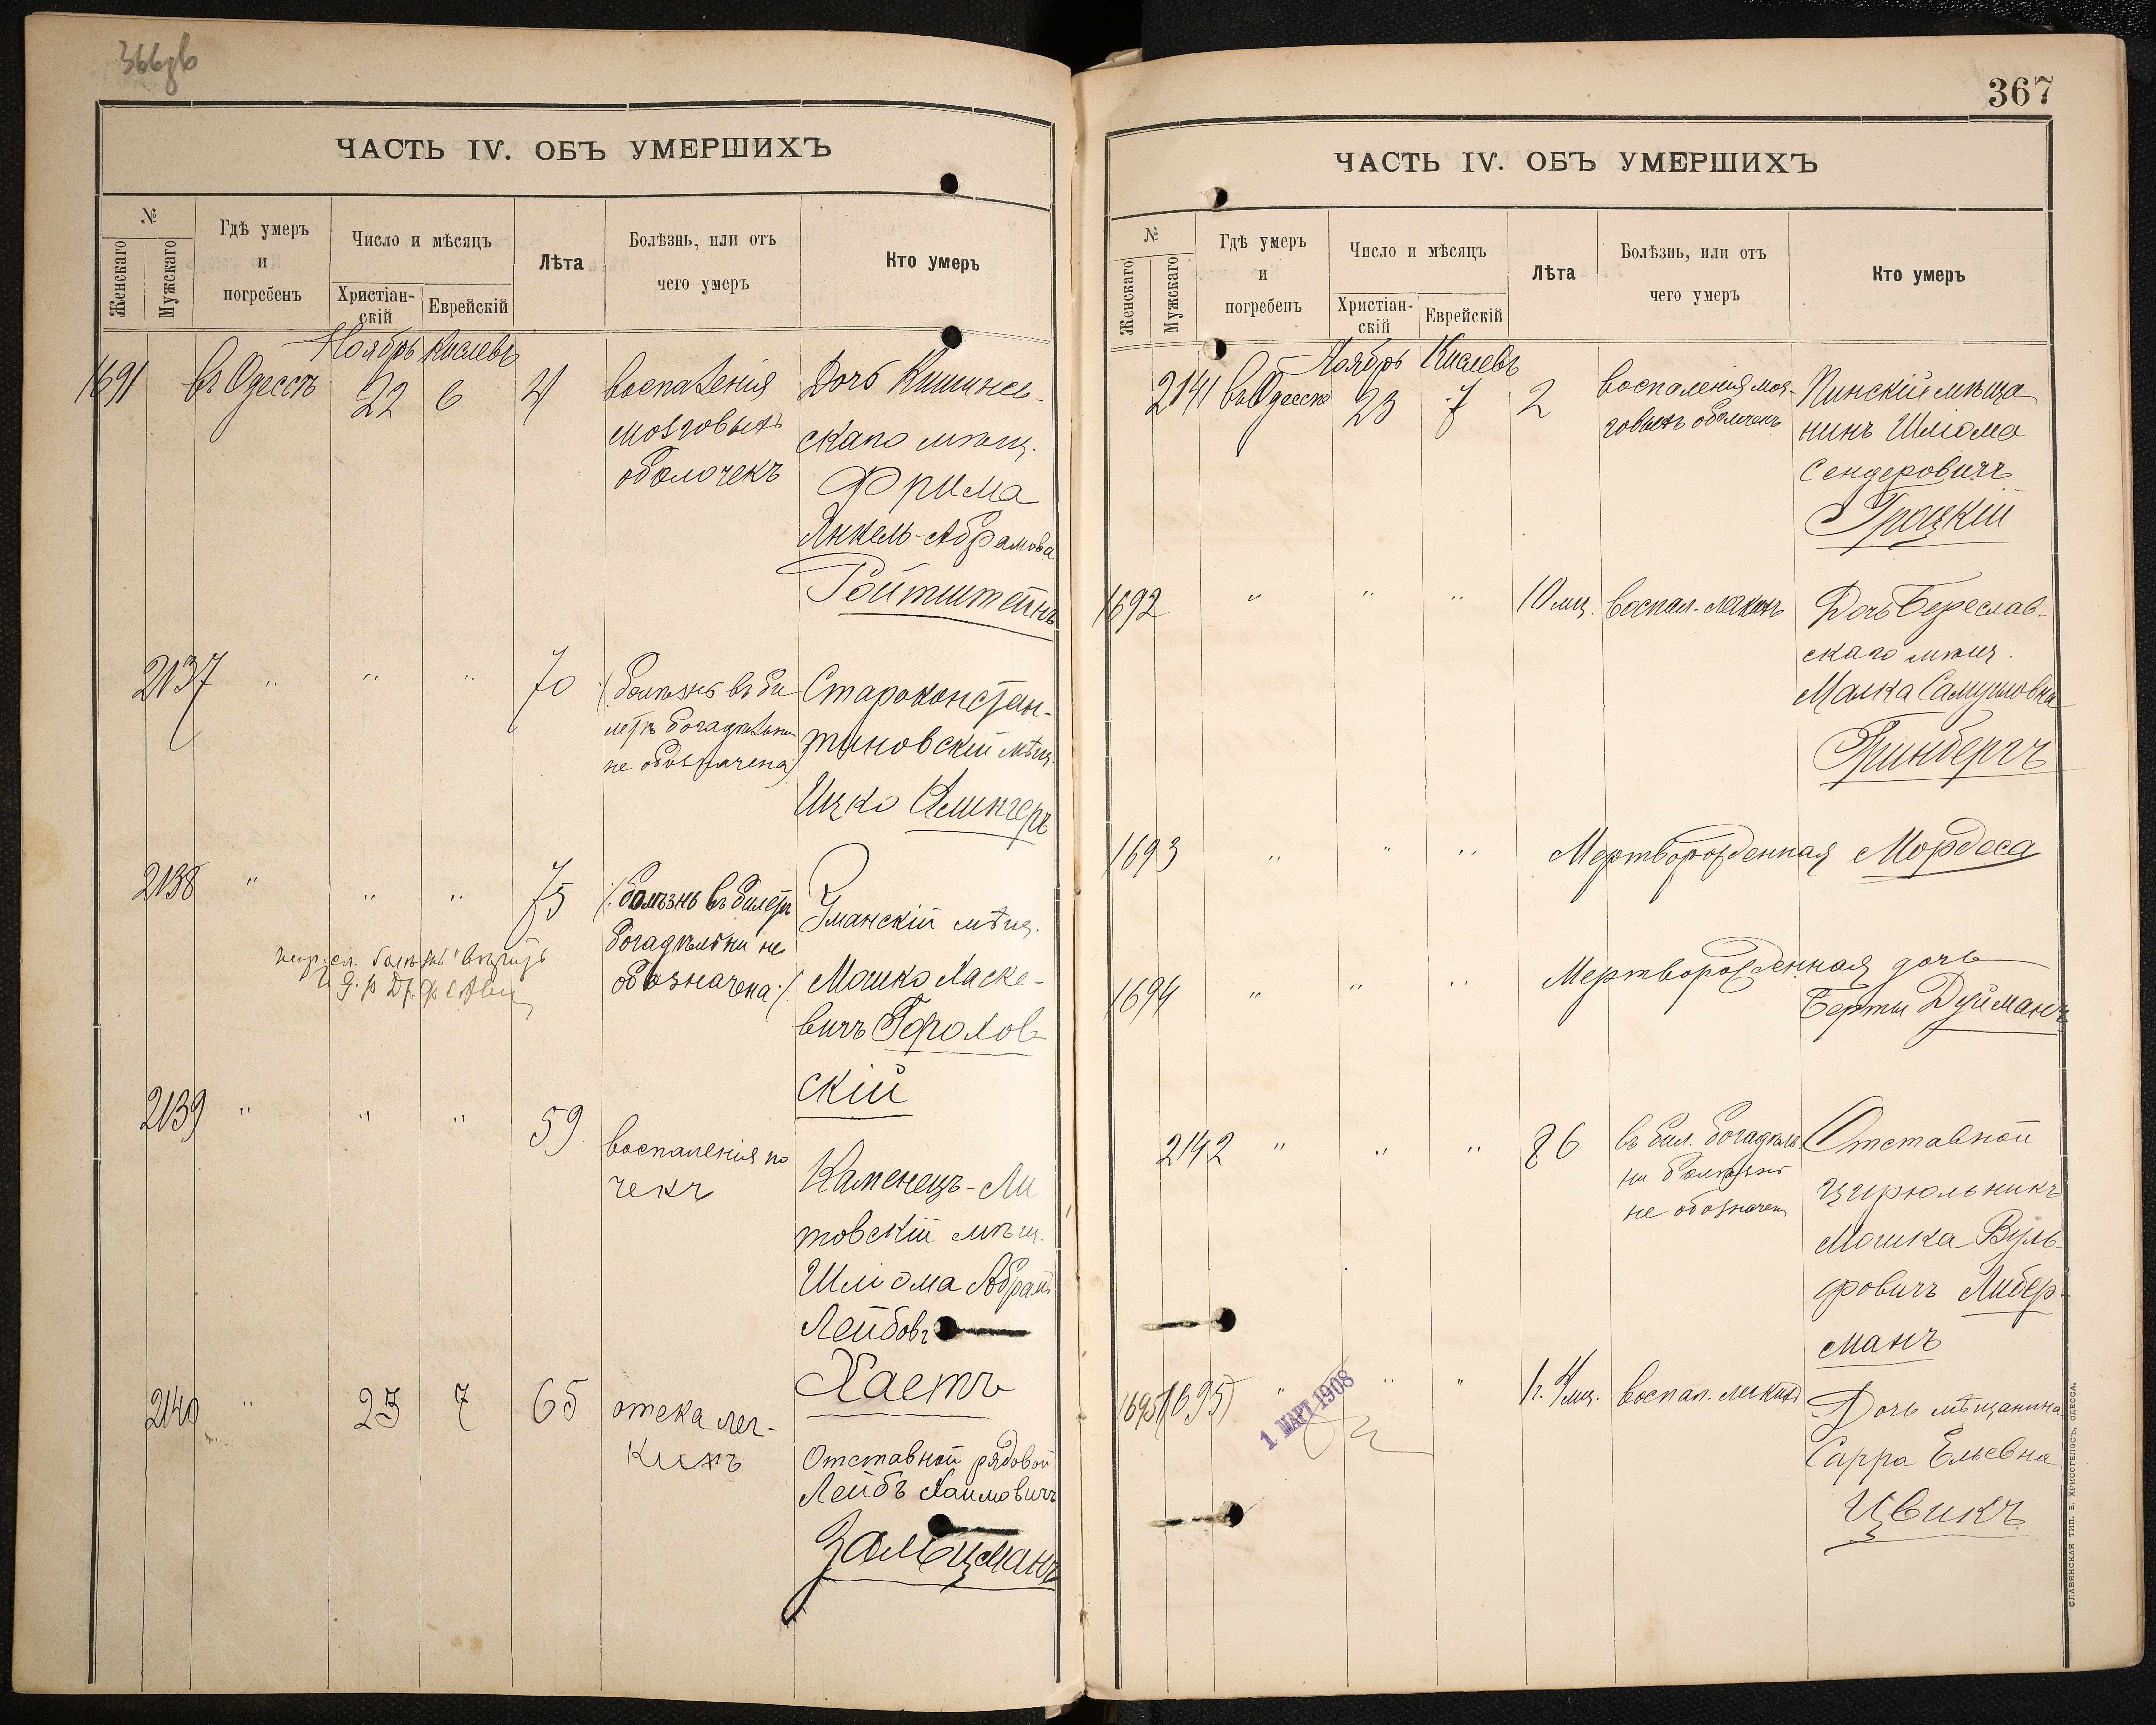 ЧАСТЬ IV. ОБЪ УМЕРШИХЪ
№
Женскаго
Мужскаго
Гдѣ умеръ
и
погребенъ
Число и мѣсяцъ
Христіан-
скій
Еврейскій
Лѣта
Болѣзнь, или отъ
чего умеръ
Кто умеръ
Ноябрь Кислевъ
1691 въ Одессѣ 22 6 4
воспаленія
мозговыхъ
оболочекъ
Дочь Кишинев-
скаго мѣщ.
Фрима
Янкель-Абрамова
Ройтштейнъ
2137 " " " 70
(болѣзнь въ би
летѣ богадѣльни
не обозначена)
Староконстан-
тиновскій мѣщ.
Ицко Клингеръ
2138 " " " 75
(:болѣзнь въ билетѣ
богадѣльни не
обозначена:)
Уманскій мѣщ.
Мошко Ласке-
вичъ Горохов
скій
2139 " " " 59
воспаленія по
чекъ
Каменецъ-Ли
товскій мѣщ.
Шліома Абрамъ
Лейбовъ
Хаетъ
2140 " 23 7 65
отека лег-
кихъ
Отставной рядовой
Лейбъ Хаимовичъ
Зальцманъ
367
ЧАСТЬ IV. ОБЪ УМЕРШИХЪ
№
Женскаго
Мужскаго
Гдѣ умеръ
и
погребенъ
Число и мѣсяцъ
Христіан-
скій
Еврейскій
Лѣта
Болѣзнь, или отъ
чего умеръ
Кто умеръ
Ноябрь Кислевъ
2141 въ Одессѣ 23 7 2
воспаленія моз-
говыхъ оболочекъ
Пинскій мѣща
нинъ Шліома
Сендеровичъ
Троцкій
1692 " " " 10 мѣц. воспал. легкихъ
Дочь Береслав-
скаго мѣщ.
Малка Самуиловна
Гринбергъ
1693 " " " Мертворожденная Мордеса
1694 " " " Мертворожденная дочь
Берты Дуйманъ
2142 " " " 86
въ бил. богадѣль
ни болѣзнь
не обозначен
Отставной
цирюльникъ
Мошка Вуль
фовичъ Либер
манъ
1695 (1695) " " " 1 г. 4 мц. воспал. легкихъ
1 МАРТ 1908
Дочь мѣщанина
Сарра Ельевна
Цвикъ
СЛАВЯНСКАЯ ТИП. Е. ХРИСОГЕЛОСЪ, ОДЕССА.